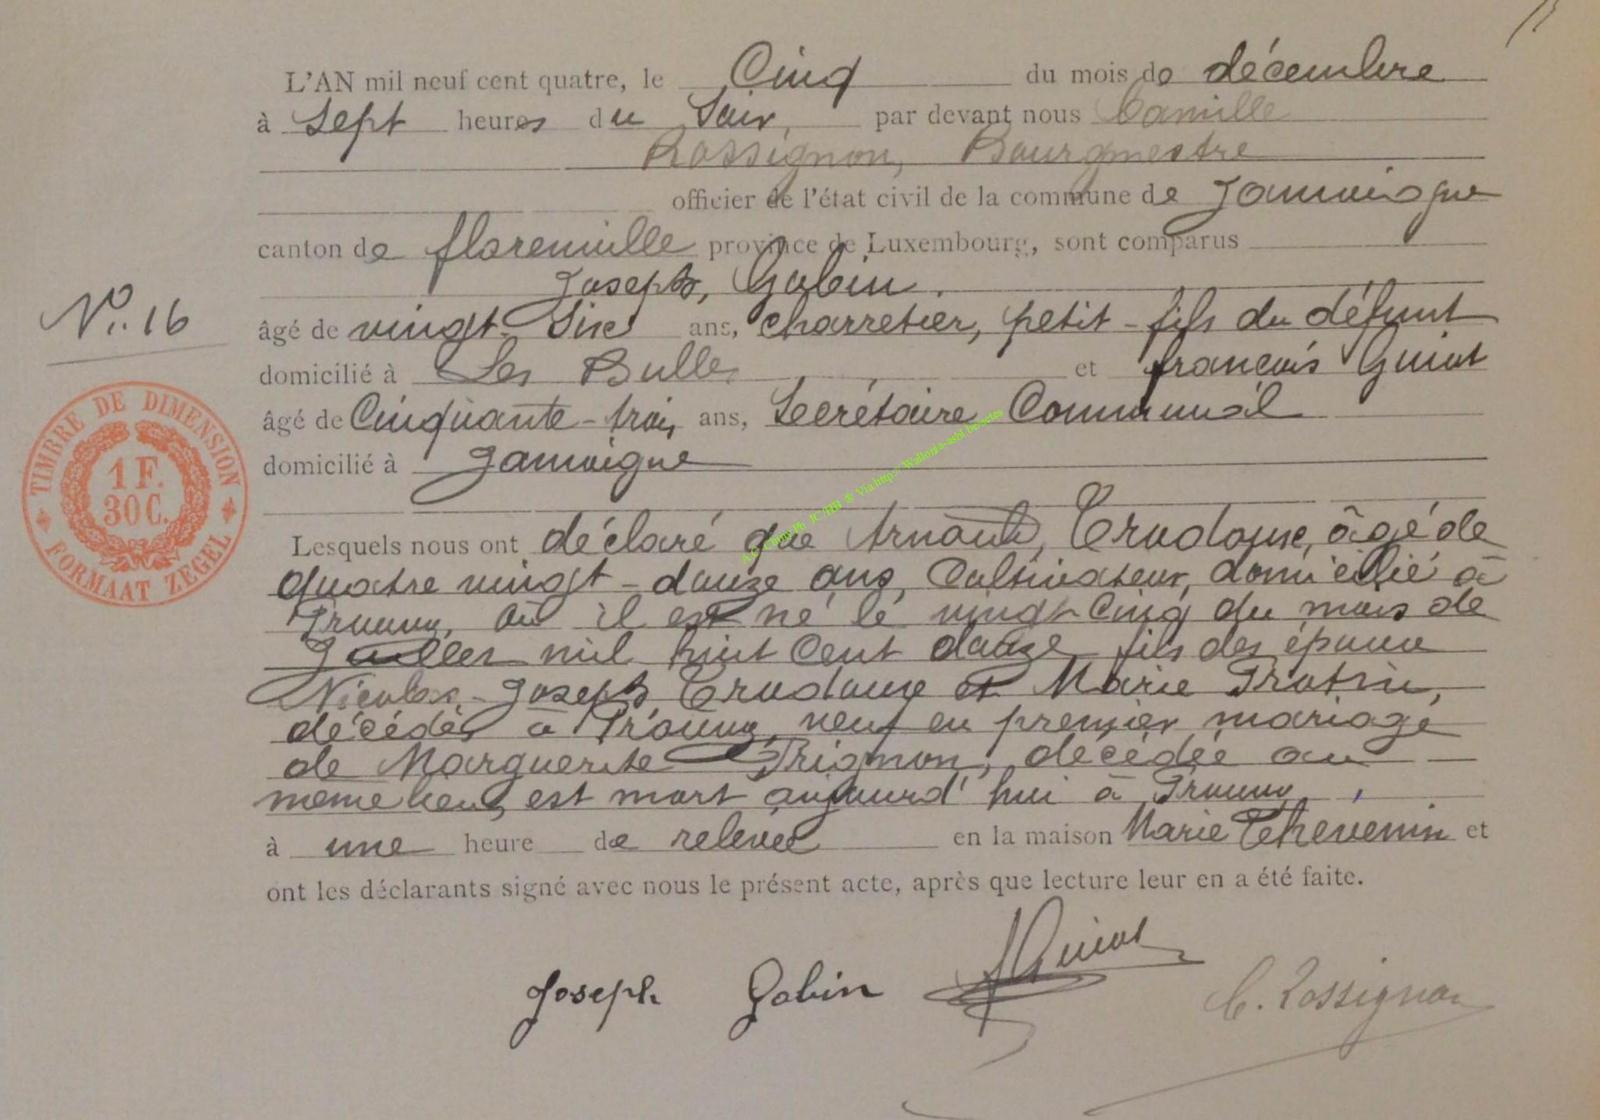 L'AN mil neuf cent quatre, le Cinq du mois de décembre
à Sept heures du Soir, par devant nous Camille
Rossignon, Bourgmestre
officier de l'état civil de la commune de Jamoigne
canton de florenville province de Luxembourg, sont comparus
Joseph, Gobin.
N°. 16
âgé de vingt-Six ans, charretier, petit-fils du défunt
domicilié à Les Bulles et françois Guiot
âgé de Cinquante-trois ans, Secrétaire Communal
domicilié à Jamoigne
TIMBRE DE DIMENSION
1 F.
30 C.
FORMAAT ZEGEL
Lesquels nous ont déclaré que Arnould, Crudome, âgé de
quatre vingt-douze ans, Cultivateur, domicilié à
où il est né le vingt Cinq du mois de
Juillet mil huit Cent douze, fils des époux
Nicolas-Joseph Crudome et Marie
décédés à veuf en premier mariage
de Marguerite décédée au
même lieu, est mort aujourd'hui à
à une heure de relevée en la maison Marie Thevenin et
ont les déclarants signé avec nous le présent acte, après que lecture leur en a été faite.
Joseph Gobin
Guiot
C. Rossignon